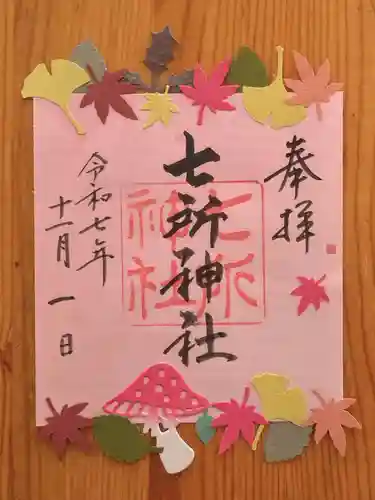 奉拝
七所神社
七所
神社
令和七年
十一月一日